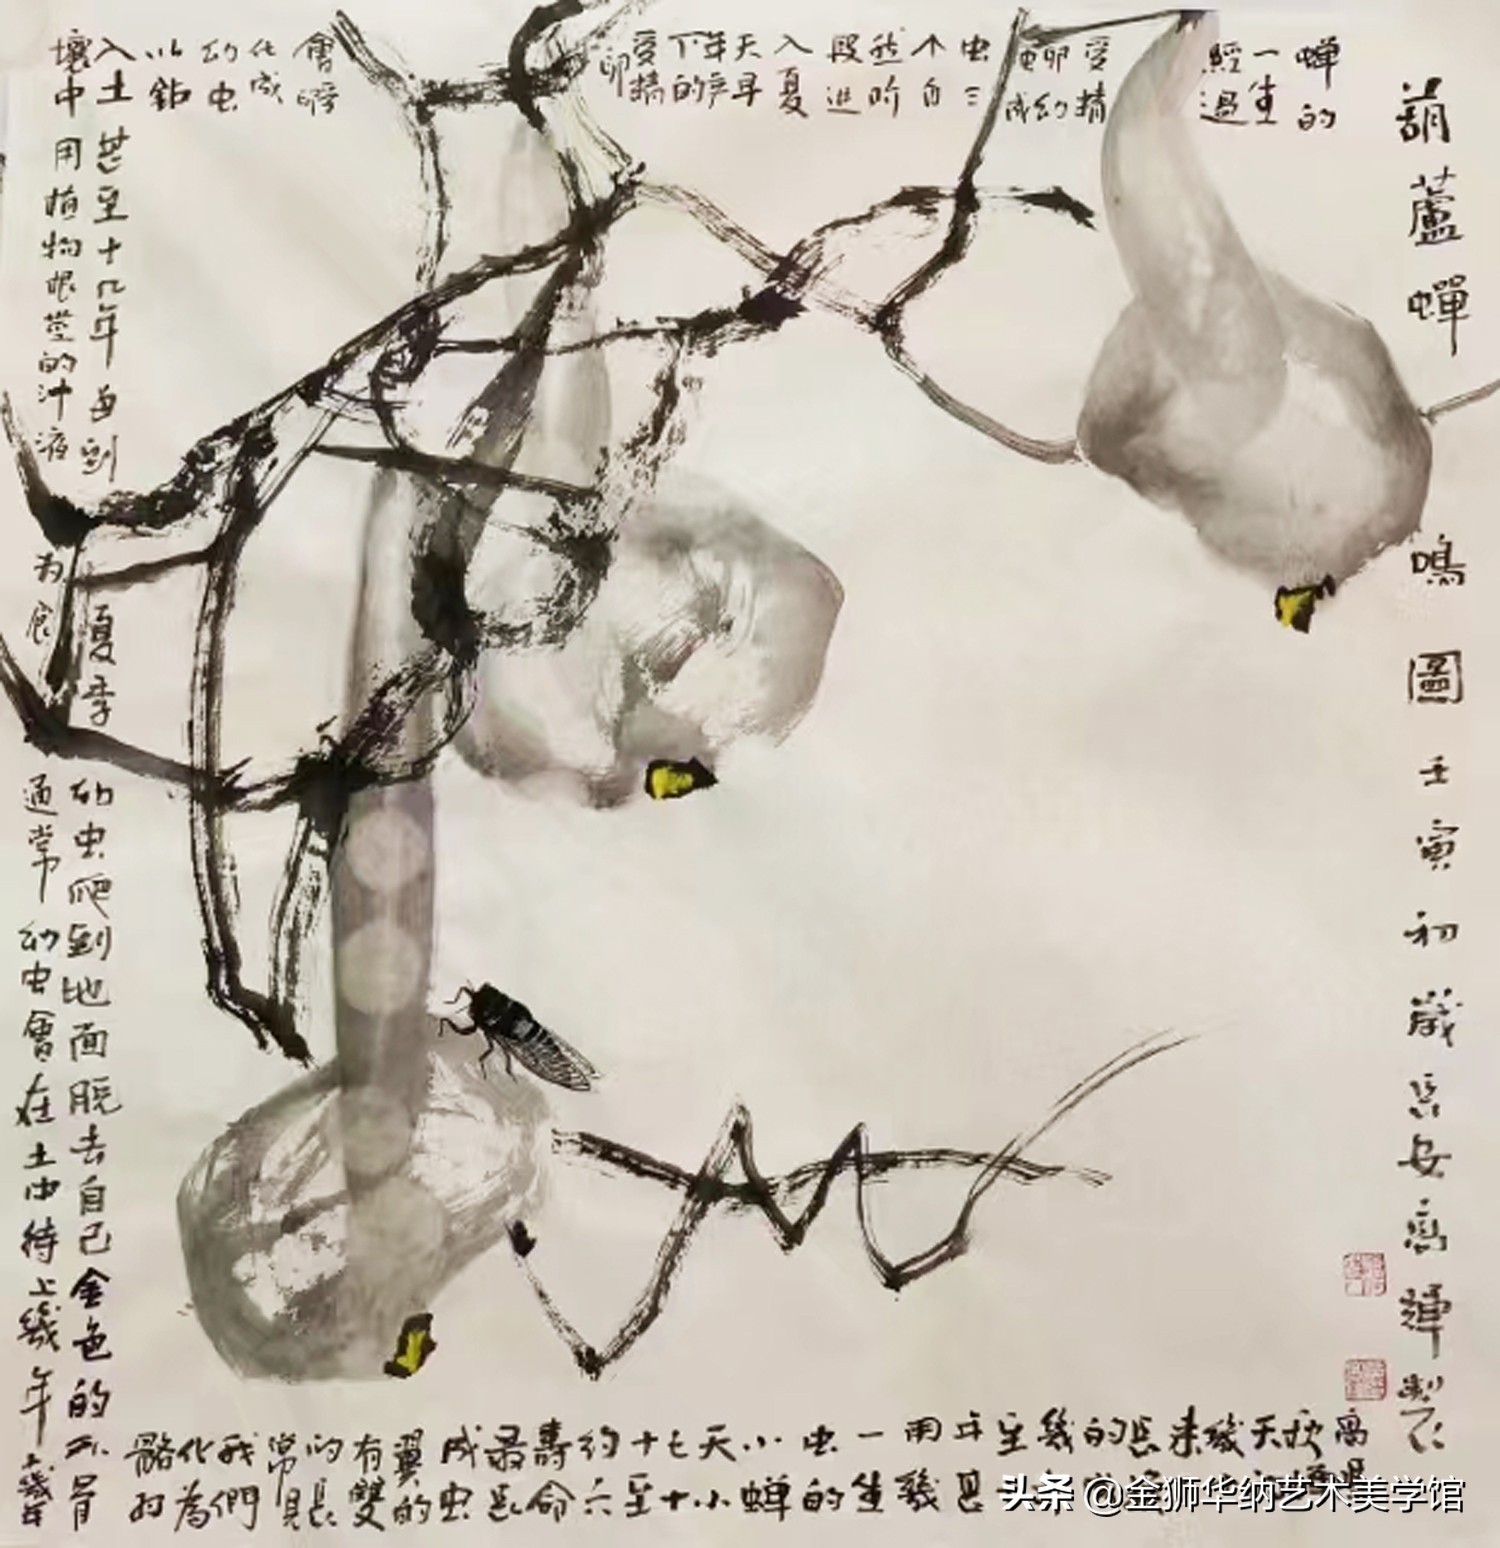 葫蘆蟬鳴圖 壬寅初歲長安高
蝉的
一生
經過
受精
卵幼
虫成
虫三
个自
然阶
段进
入夏
天早
年产
下的
受精
卵
會孵
化成
幼虫
以鉆
入土甚至十几年每到夏季幼虫爬到地面脱去自己金色的外骨
壤中用植物根莖的汁液为食通常幼虫會在土中待上幾年
骼
化為
我們
常見
的長
有雙
翼的
成虫
最長
壽命
约六
十至
七十
天小
小蝉
虫的
一生
用幾
年甚
头条 @金狮华纳艺术美学馆